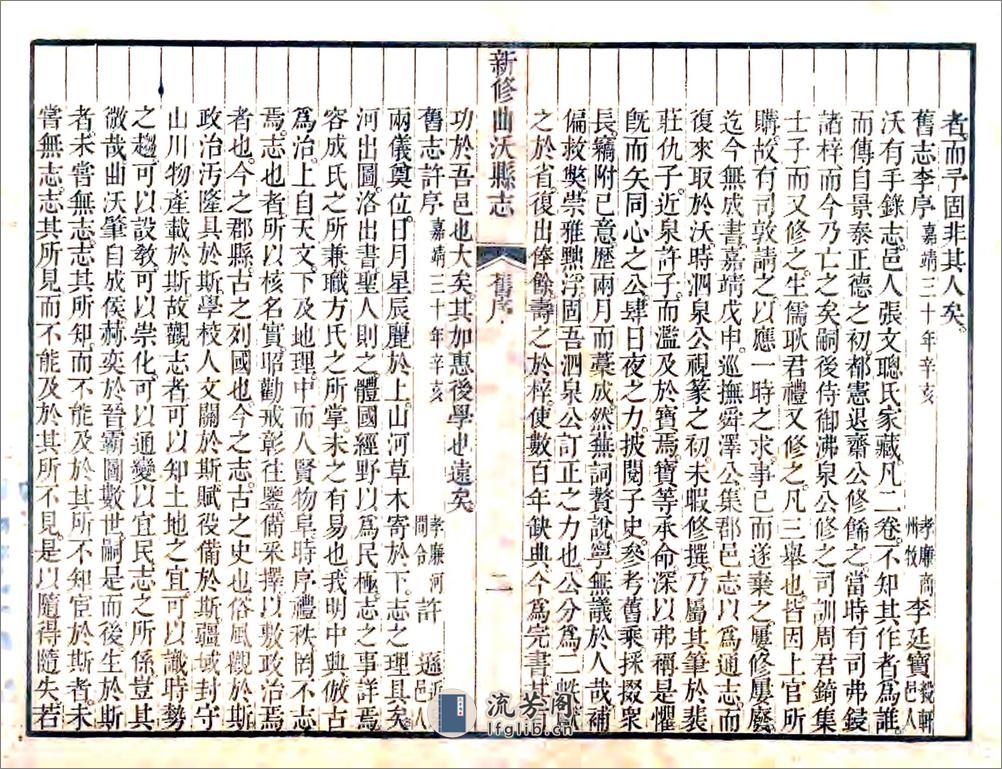 者而予固非其人矣
舊志李序嘉靖三十年辛亥 孝廉商州牧李廷寶毅軒邑人
沃有手錄志邑人張文聰氏家藏凡二卷不知其作者為誰
而傳自景泰正德之初都憲退齋公修餙之當時有司弗鋟
諸梓而今乃亡之矣嗣後侍御沸泉公修之司訓周君錡集
士子而又修之生儒耿君禮又修之凡三舉也皆因上官所
購故有司敦請之以應一時之求事已而遂棄之屢修屢廢
迄今無成書嘉靖戊申巡撫舜澤公集郡邑志以為通志而
復來取於沃時泗泉公視篆之初未暇修撰乃屬其筆於裴
莊仇子近泉許子而濫及於寶焉寶等承命深以弗稱是懼
既而矢同心之公肆日夜之力披閱子史參考舊乘採掇衆
長竊附已意歷兩月而藁成然蕪詞贅說寧無議於人哉補
偏救獘崇雅黜浮固吾泗泉公訂正之力也公分為二帙獻
之於省復出俸餘壽之於梓使數百年缺典今為完書其有
新修曲沃縣志 舊序 二
功於吾邑也大矣其加惠後學也遠矣
舊志許序嘉靖三十年辛亥 孝廉河間合許遜近邑人
兩儀奠位日月星辰麗於上山河草木寄於下志之理具矣
河出圖洛出書聖人則之體國經野以為民極志之事詳焉
容成氏之所兼職方氏之所掌未之有易也我明中興倣古
為治上自天文下及地理中而人賢物阜時序禮秩罔不志
焉志也者所以核名實昭勸戒彰往鑒備采擇以敷政治焉
者也今之郡縣古之列國也今之志古之史也俗風觀於斯
政治汚隆具於斯學校人文關於斯賦役備於斯疆域封守
山川物產載於斯故觀志者可以知土地之宜可以識時勢
之趨可以設教可以崇化可以通變以宜民志之所係豈其
微哉曲沃肇自成侯赫奕於晉霸圖數世嗣是而後生於斯
者未嘗無志志其所知而不能及於其所不知宦於斯者未
嘗無志志其所見而不能及於其所不見是以隨得隨失若
流芳阁
lfglib.cn